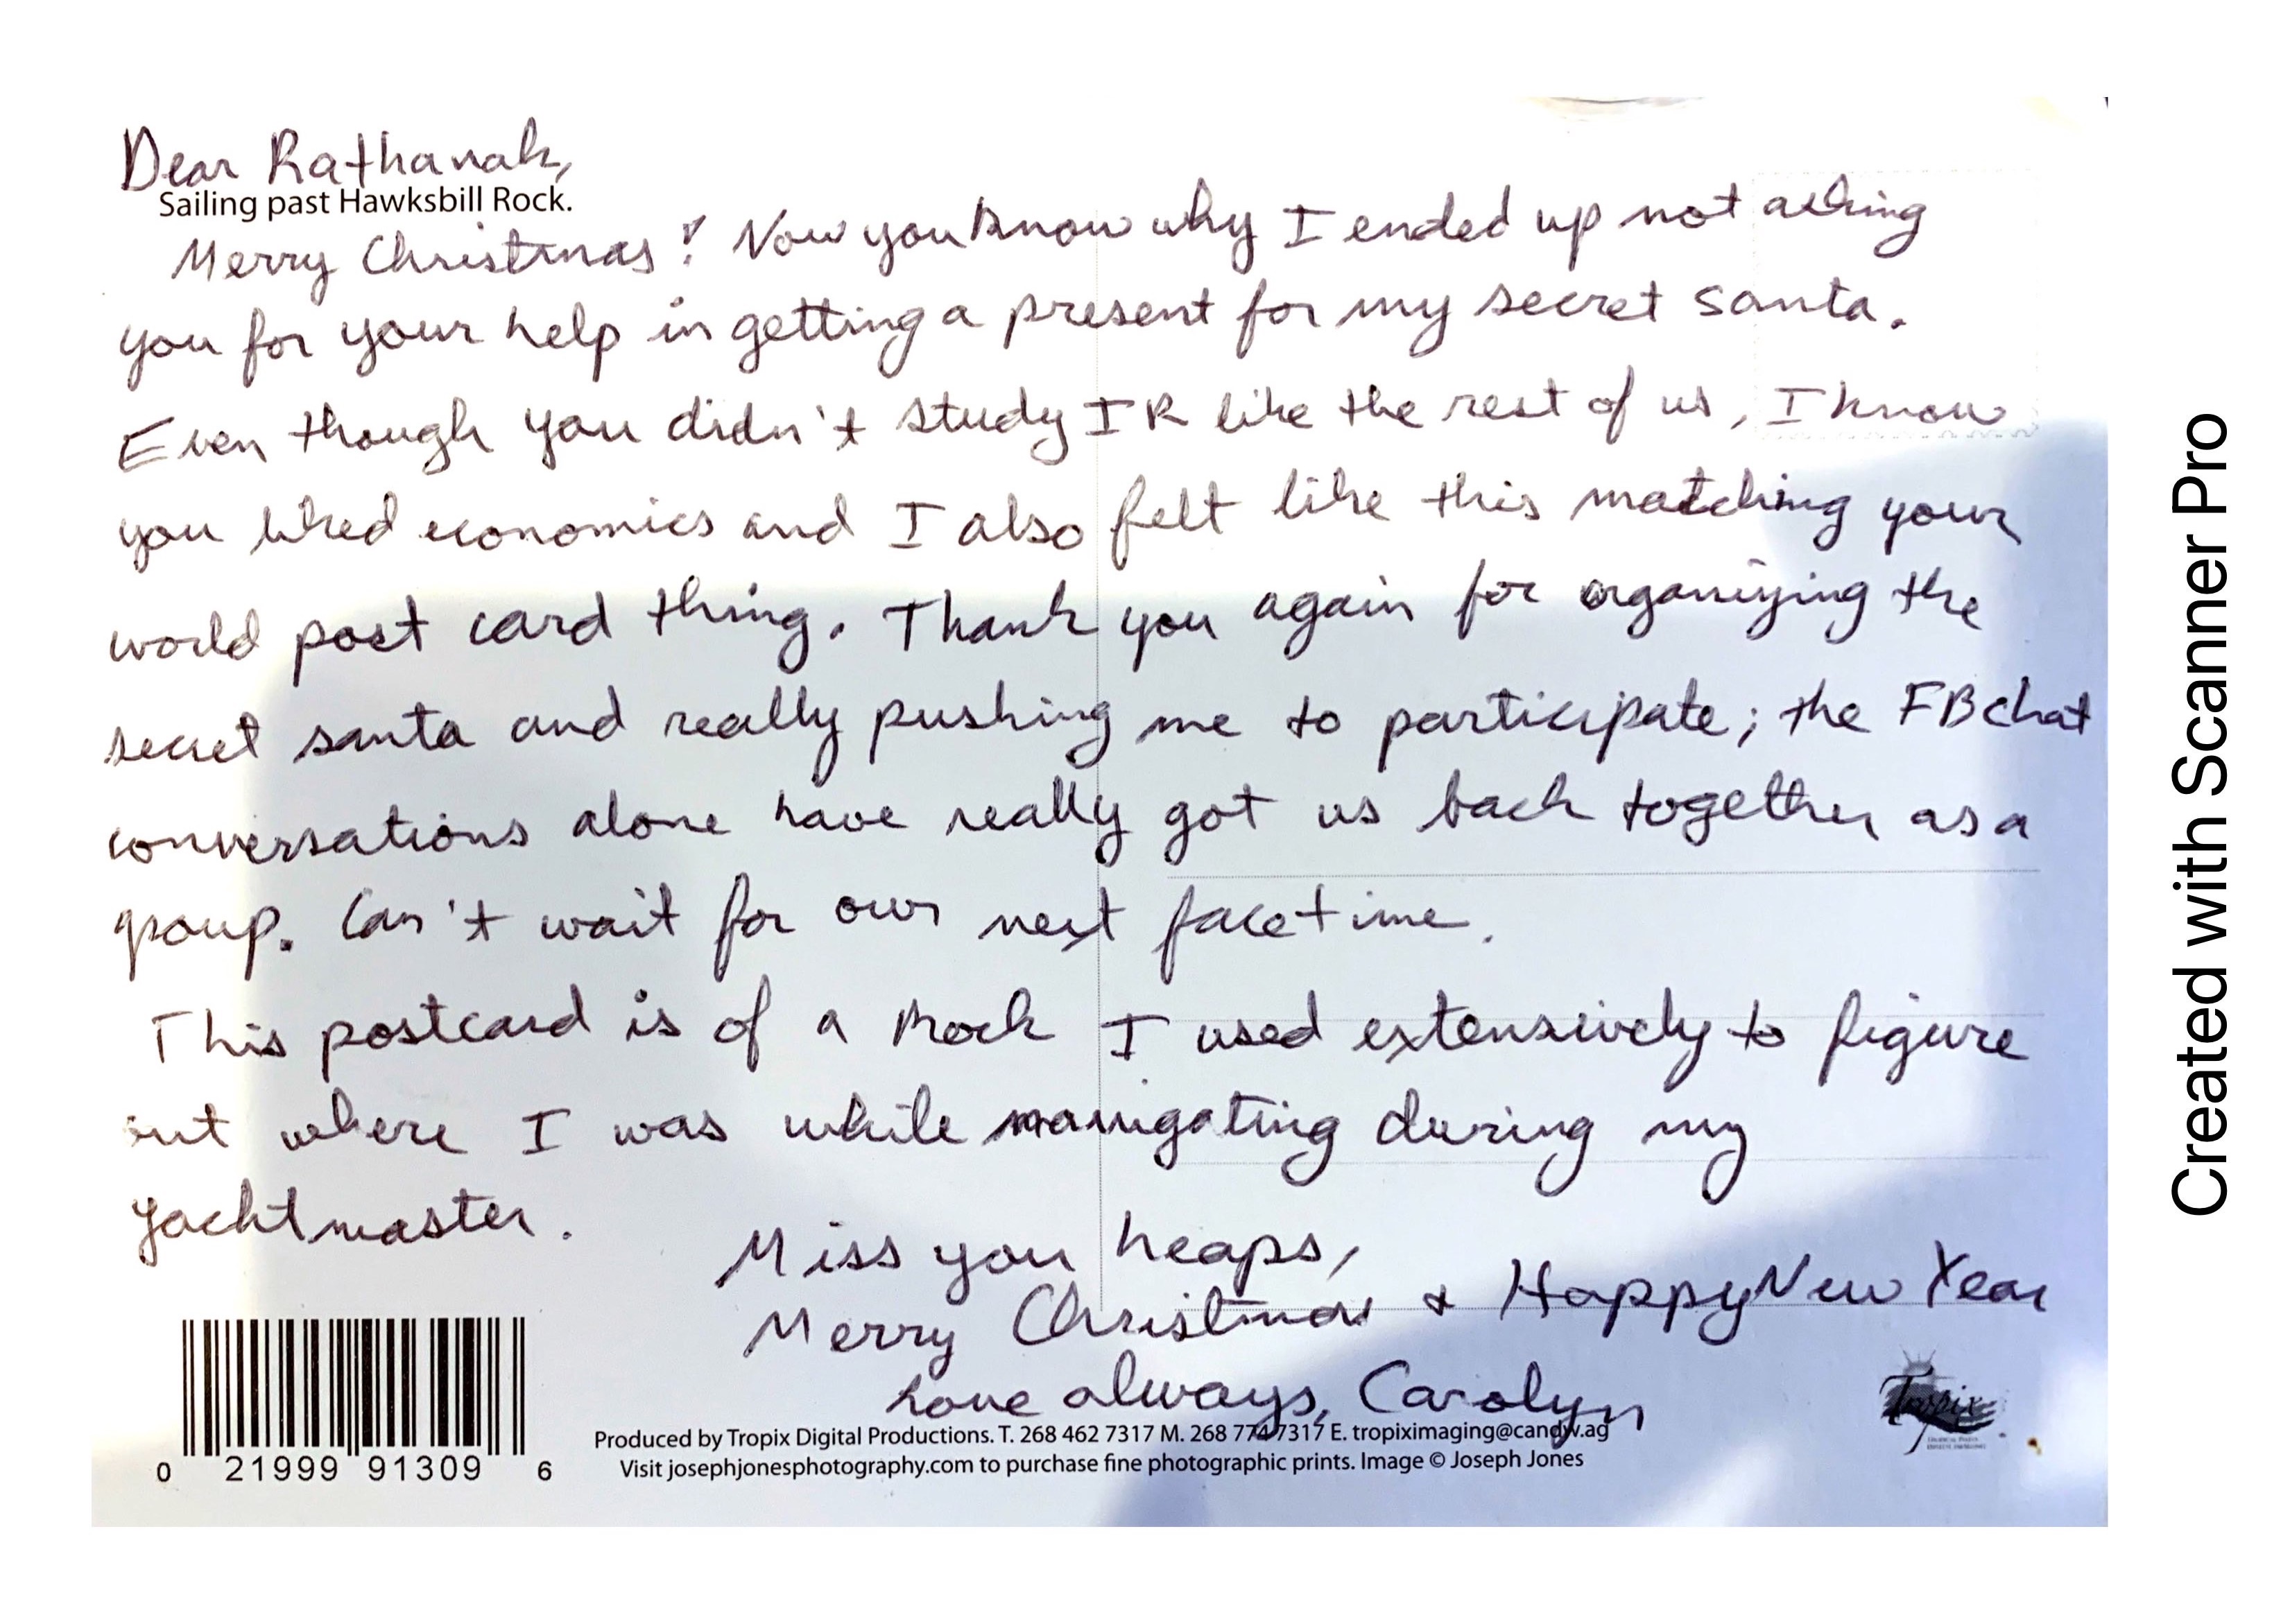 Dear Rathanak,
Sailing past Hawksbill Rock.
Merry Christmas! Now you know why I ended up not asking
you for your help in getting a present for my secret santa.
Even though you didn't study IR like the rest of us, I know
you liked economics and I also felt like this matching your
world post card thing. Thank you again for organizing the
secret santa and really pushing me to participate; the FB chat
conversations alone have really got us back together as a
group. Can't wait for our next facetime.
This postcard is of a rock I used extensively to figure
out where I was while navigating during my
yachtmaster.
Miss you heaps,
Merry Christmas & Happy New Year
Love always, Carolyn
0 21999 91309 6
Produced by Tropix Digital Productions. T. 268 462 7317 M. 268 774 7317 E. tropiximaging@candw.ag
Visit josephjonesphotography.com to purchase fine photographic prints. Image © Joseph Jones
Tropix
Created with Scanner Pro